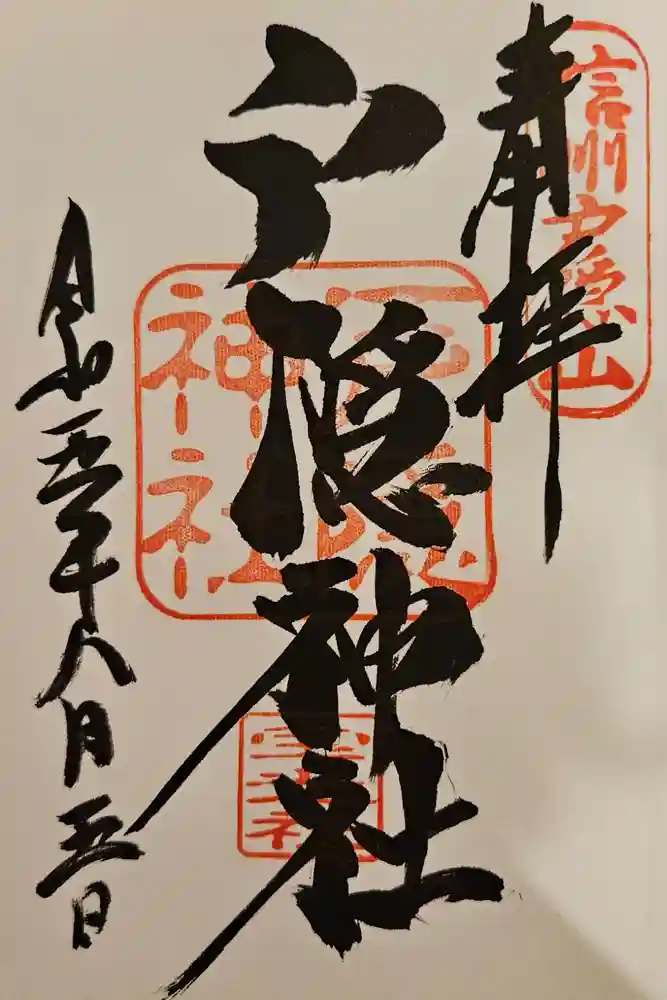 奉拝
信州戸隠山
戸隠神社
戸隠
神社
宝光社
令和五年八月五日